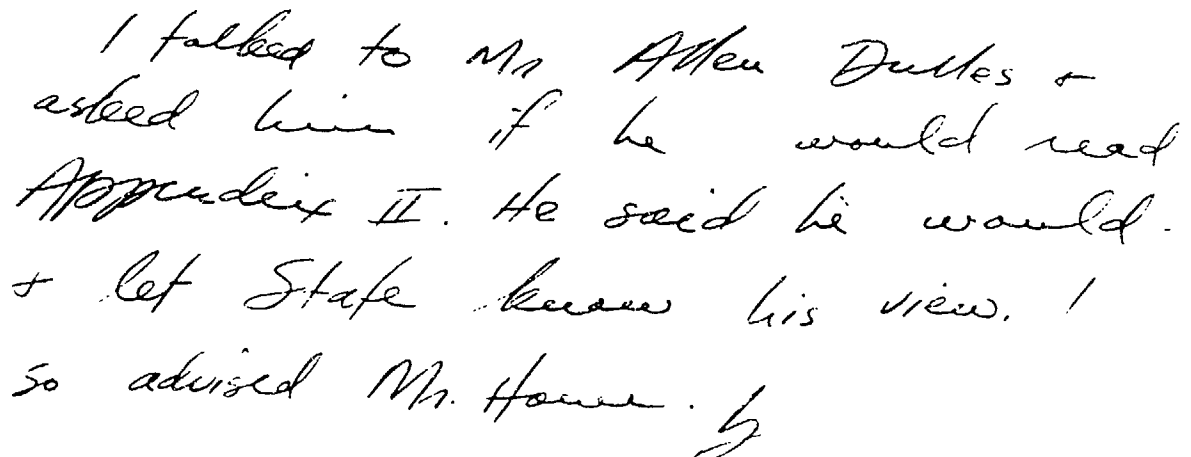 I talked to Mr Allen Dulles +
asked him if he would read
Appendix II. He said he would.
+ let State know his view. I
so advised Mr.